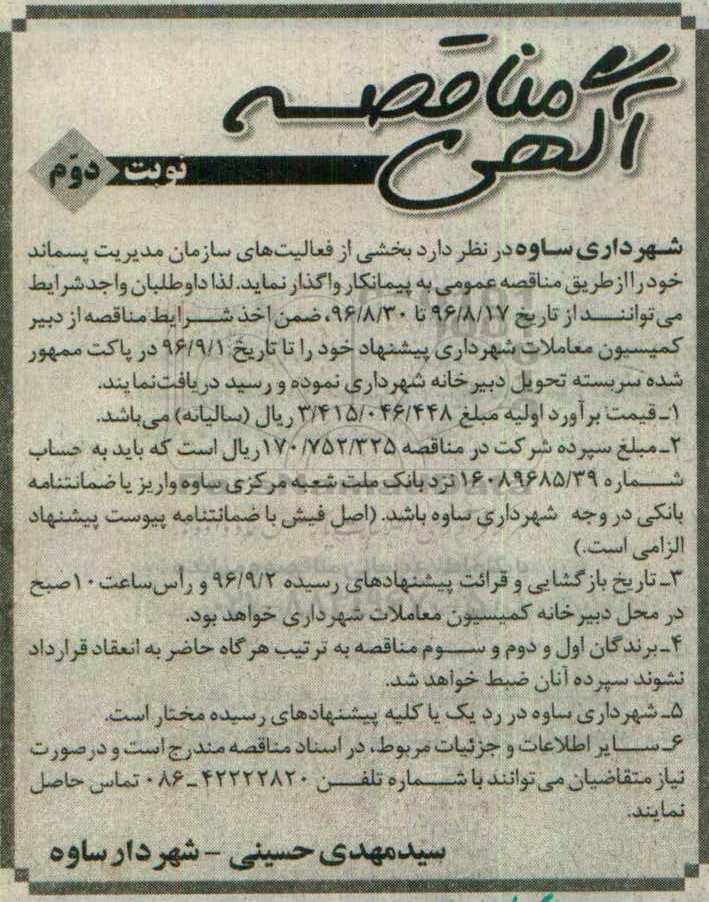 آگهی مناقصه
نوبت دوّم
شهرداری ساوه در نظر دارد بخشی از فعالیت‌های سازمان مدیریت پسماند
خود را از طریق مناقصه عمومی به پیمانکار واگذار نماید. لذا داوطلبان واجد شرایط
می توانند از تاریخ ۹۶/۸/۱۷ تا ۹۶/۸/۳۰، ضمن اخذ شرایط مناقصه از دبیر
کمیسیون معاملات شهرداری پیشنهاد خود را تا تاریخ ۹۶/۹/۱ در پاکت ممهور
شده سربسته تحویل دبیرخانه شهرداری نموده و رسید دریافت نمایند.
۱ـ قیمت برآورد اولیه مبلغ ۳/۴۱۵/۰۴۶/۴۴۸ ریال (سالیانه) می باشد.
۲ـ مبلغ سپرده شرکت در مناقصه ۱۷۰/۷۵۲/۳۲۵ ریال است که باید به حساب
شماره ۱۶۰۸۹۶۸۵/۳۹ نزد بانک ملت شعبه مرکزی ساوه واریز یا ضمانتنامه
بانکی در وجه شهرداری ساوه باشد. (اصل فیش یا ضمانتنامه پیوست پیشنهاد
الزامی است.)
۳ـ تاریخ بازگشایی و قرائت پیشنهادهای رسیده ۹۶/۹/۲ و رأس ساعت ۱۰ صبح
در محل دبیرخانه کمیسیون معاملات شهرداری خواهد بود.
۴ـ برندگان اول و دوم و سوم مناقصه به ترتیب هرگاه حاضر به انعقاد قرارداد
نشوند سپرده آنان ضبط خواهد شد.
۵ـ شهرداری ساوه در رد یک یا کلیه پیشنهادهای رسیده مختار است.
۶ـ سایر اطلاعات و جزئیات مربوط، در اسناد مناقصه مندرج است و در صورت
نیاز متقاضیان می توانند با شماره تلفن ۴۲۲۲۲۸۲۰ ـ ۰۸۶ تماس حاصل
نمایند.
سیدمهدی حسینی – شهردار ساوه